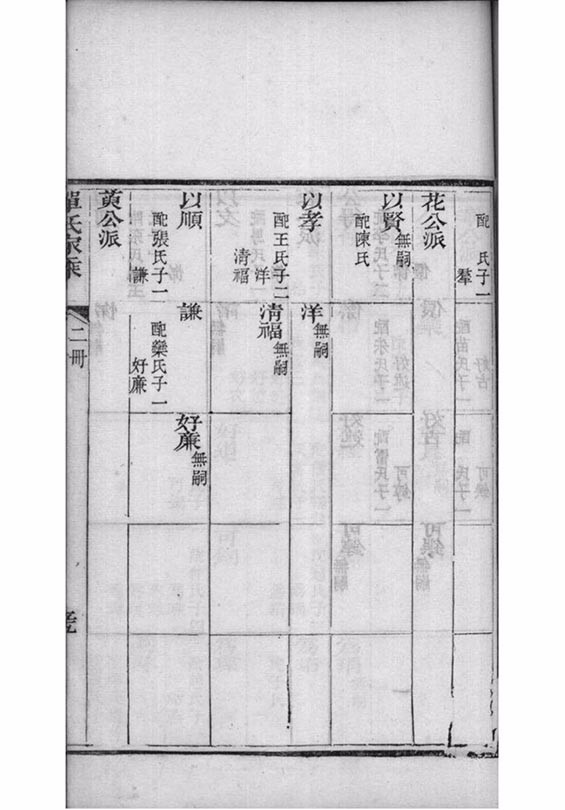 配　氏子一
羣
花公派
以賢無嗣
配陳氏
以孝
配王氏子二
洋
清福
洋無嗣
清福無嗣
以順
配張氏子一
謙
謙
配欒氏子一
好廉
好廉無嗣
黃公派
單氏家乘
二冊